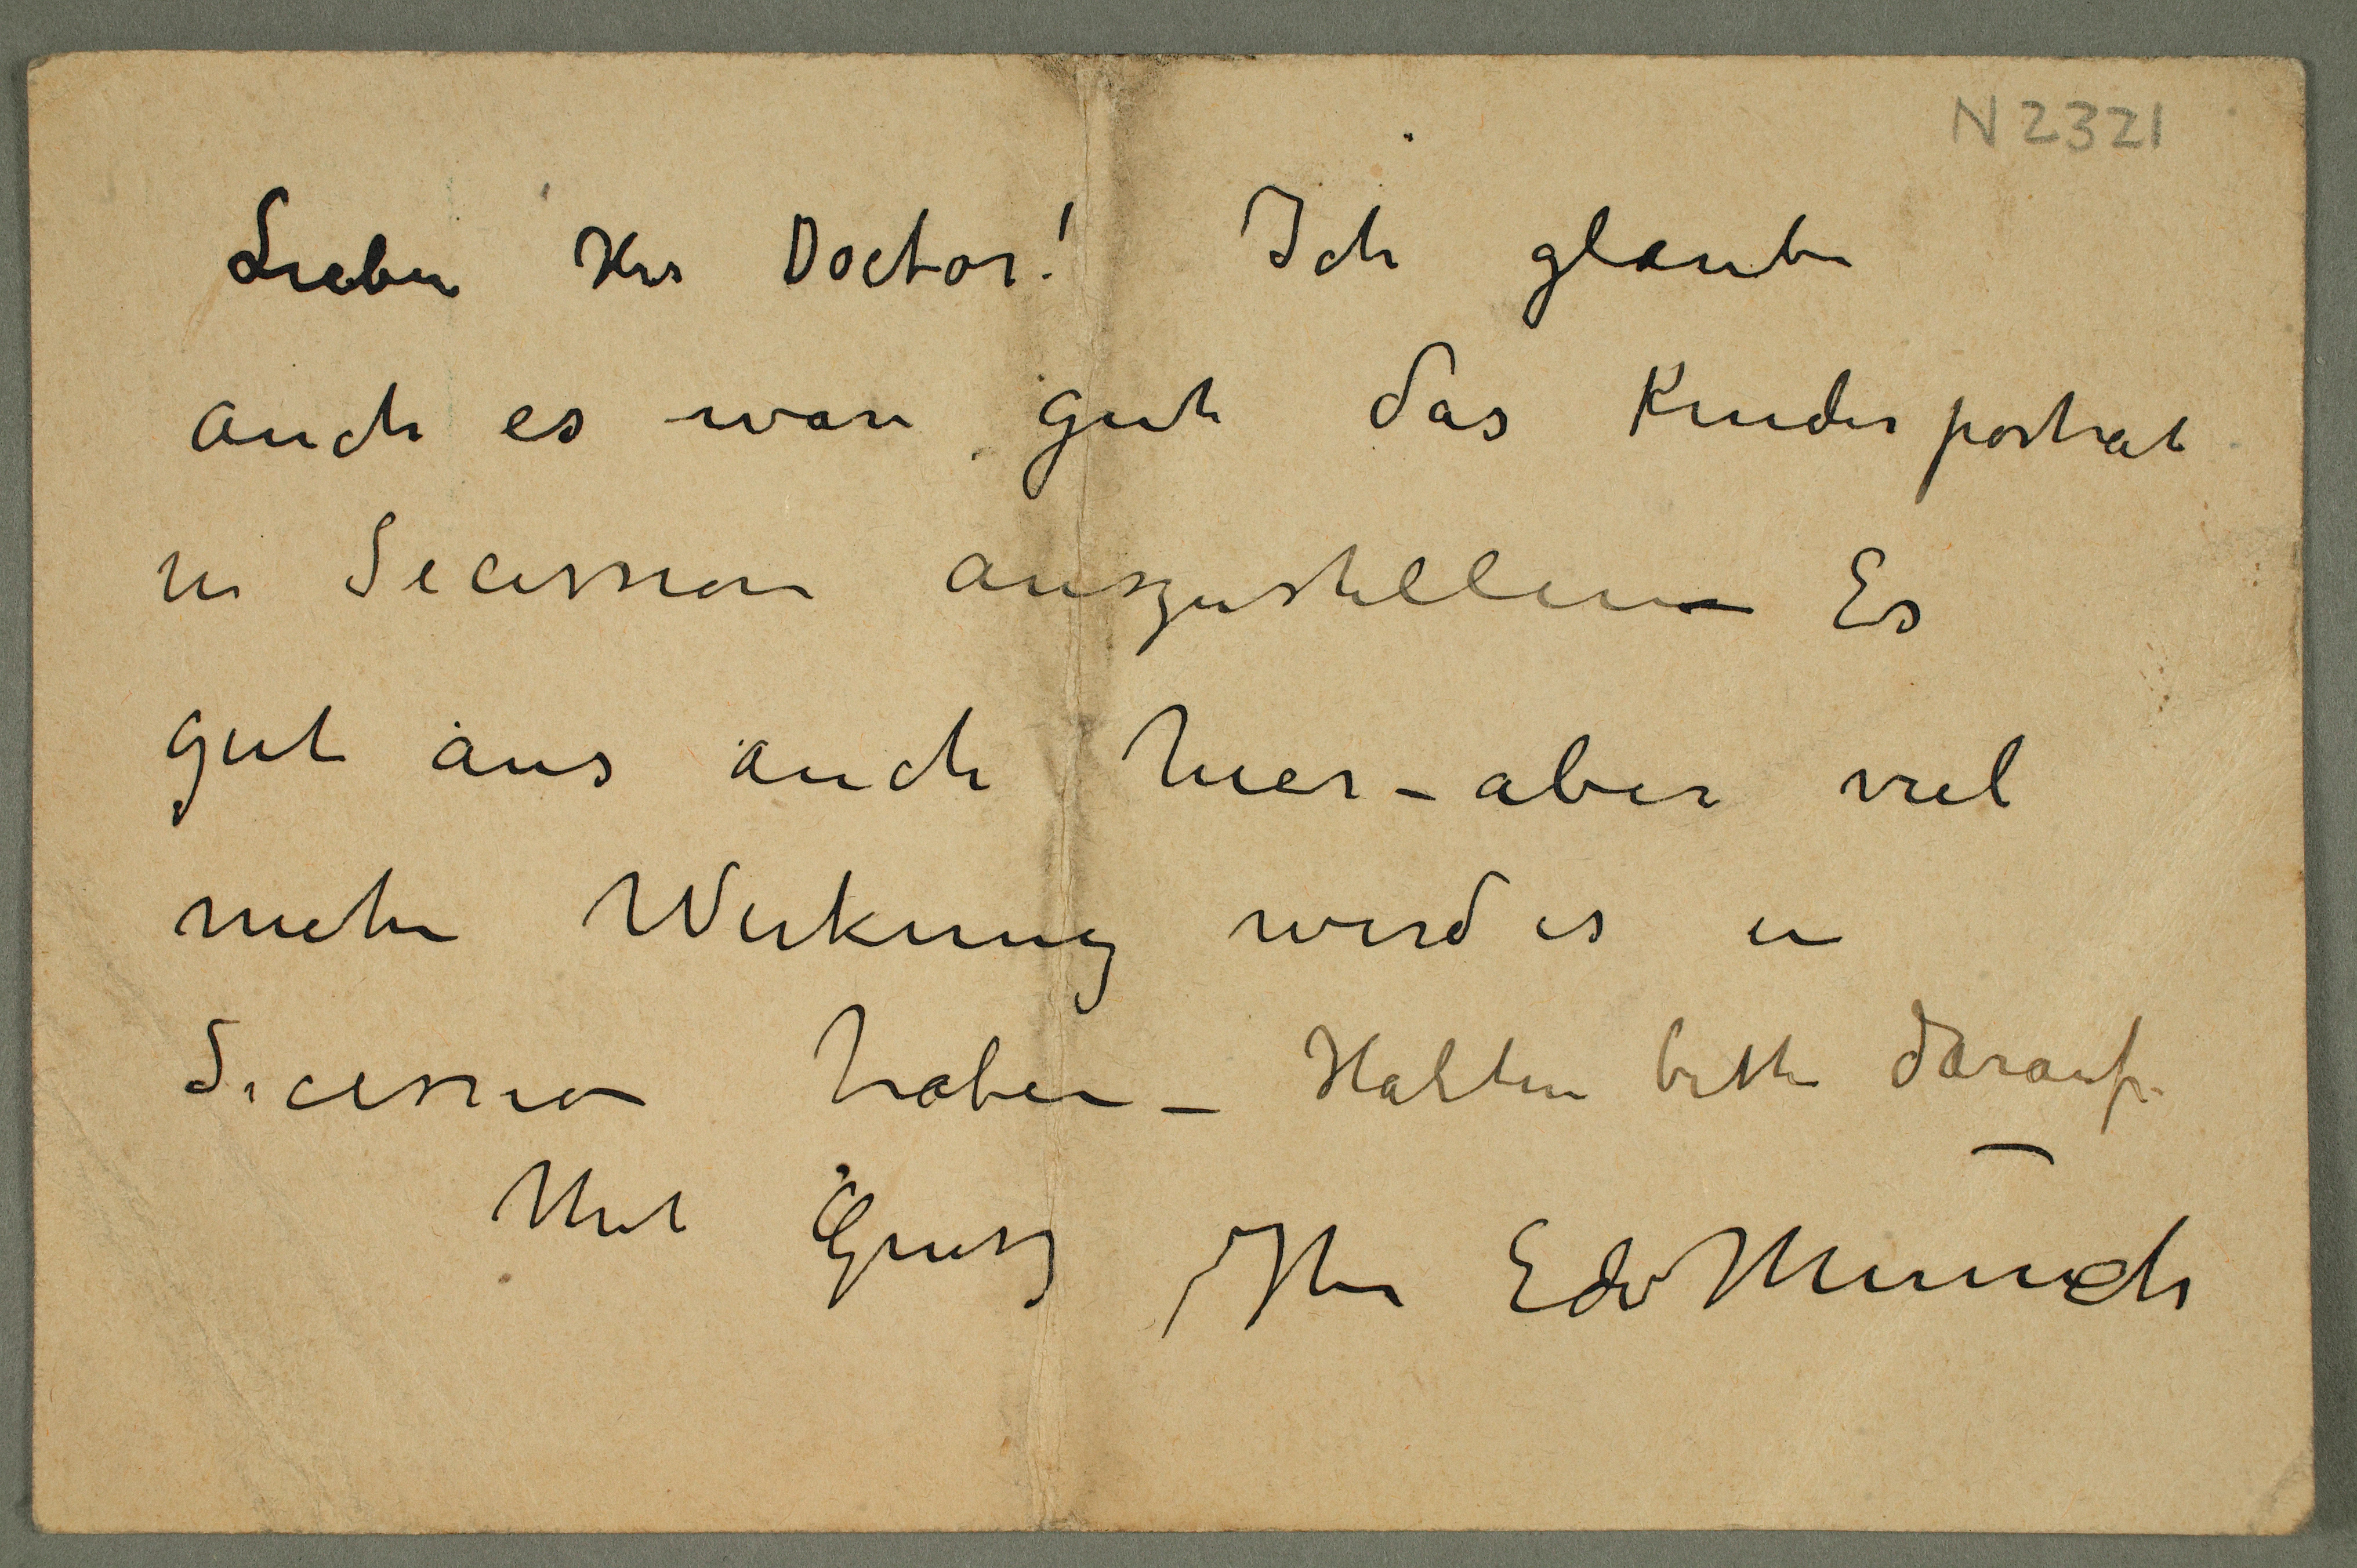 N 2321
Lieber Herr Doctor! Ich glaube
auch es war gut das Kinderportrat
in Secession auszustellen – Es
gut aus auch hier – aber viel
mehr Wirkung wird es in
Secession haben – Halten bitte darauf –
Mit Grusz Ihr Edv Munch